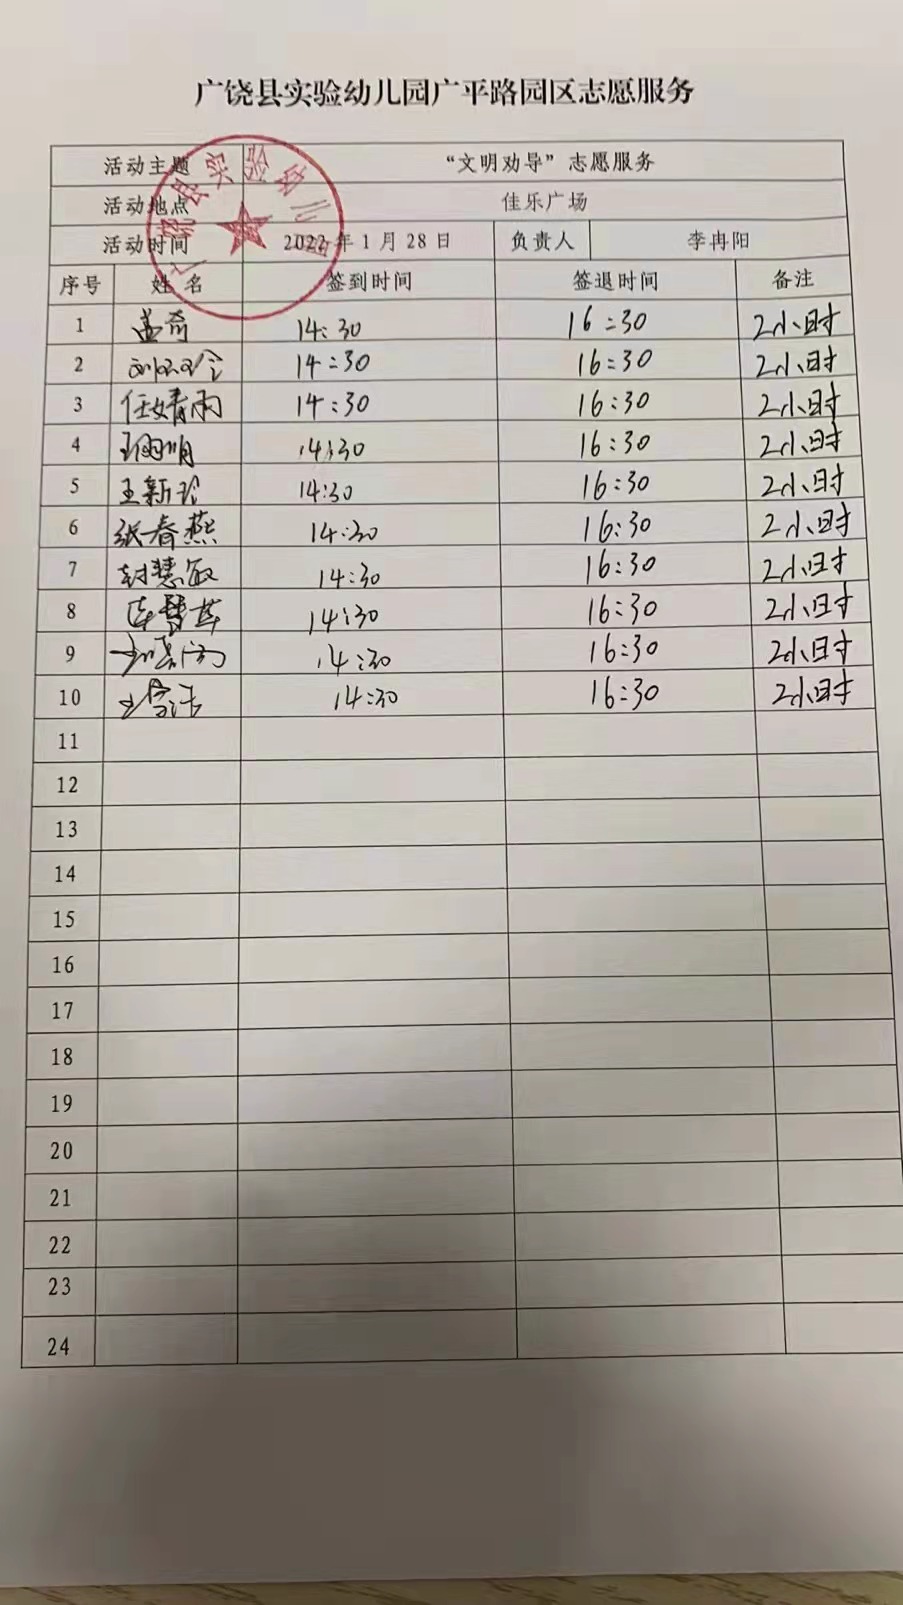 广饶县实验幼儿园广平路园区志愿服务
活动主题 “文明劝导”志愿服务
活动地点 佳乐广场
活动时间 2022年1月28日 负责人 李冉阳
序号 姓名 签到时间 签退时间 备注
1 盖奇 14:30 16:30 2小时
2 14:30 16:30 2小时
3 任婧雨 14:30 16:30 2小时
4 14:30 16:30 2小时
5 王新玲 14:30 16:30 2小时
6 张春燕 14:30 16:30 2小时
7 封慧敏 14:30 16:30 2小时
8 14:30 16:30 2小时
9 14:30 16:30 2小时
10 14:30 16:30 2小时
11
12
13
14
15
16
17
18
19
20
21
22
23
24